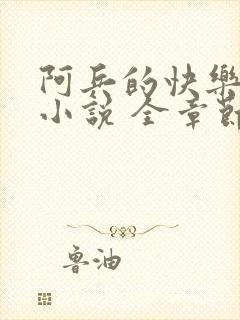 阿兵的快樂
小說 全章節
魯油